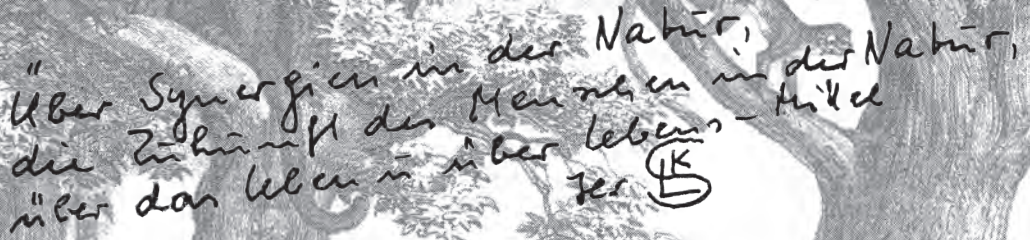 Über Synergien in der Natur,
die Zukunft des Menschen in der Natur,
über das Leben u über Lebens-Mittel